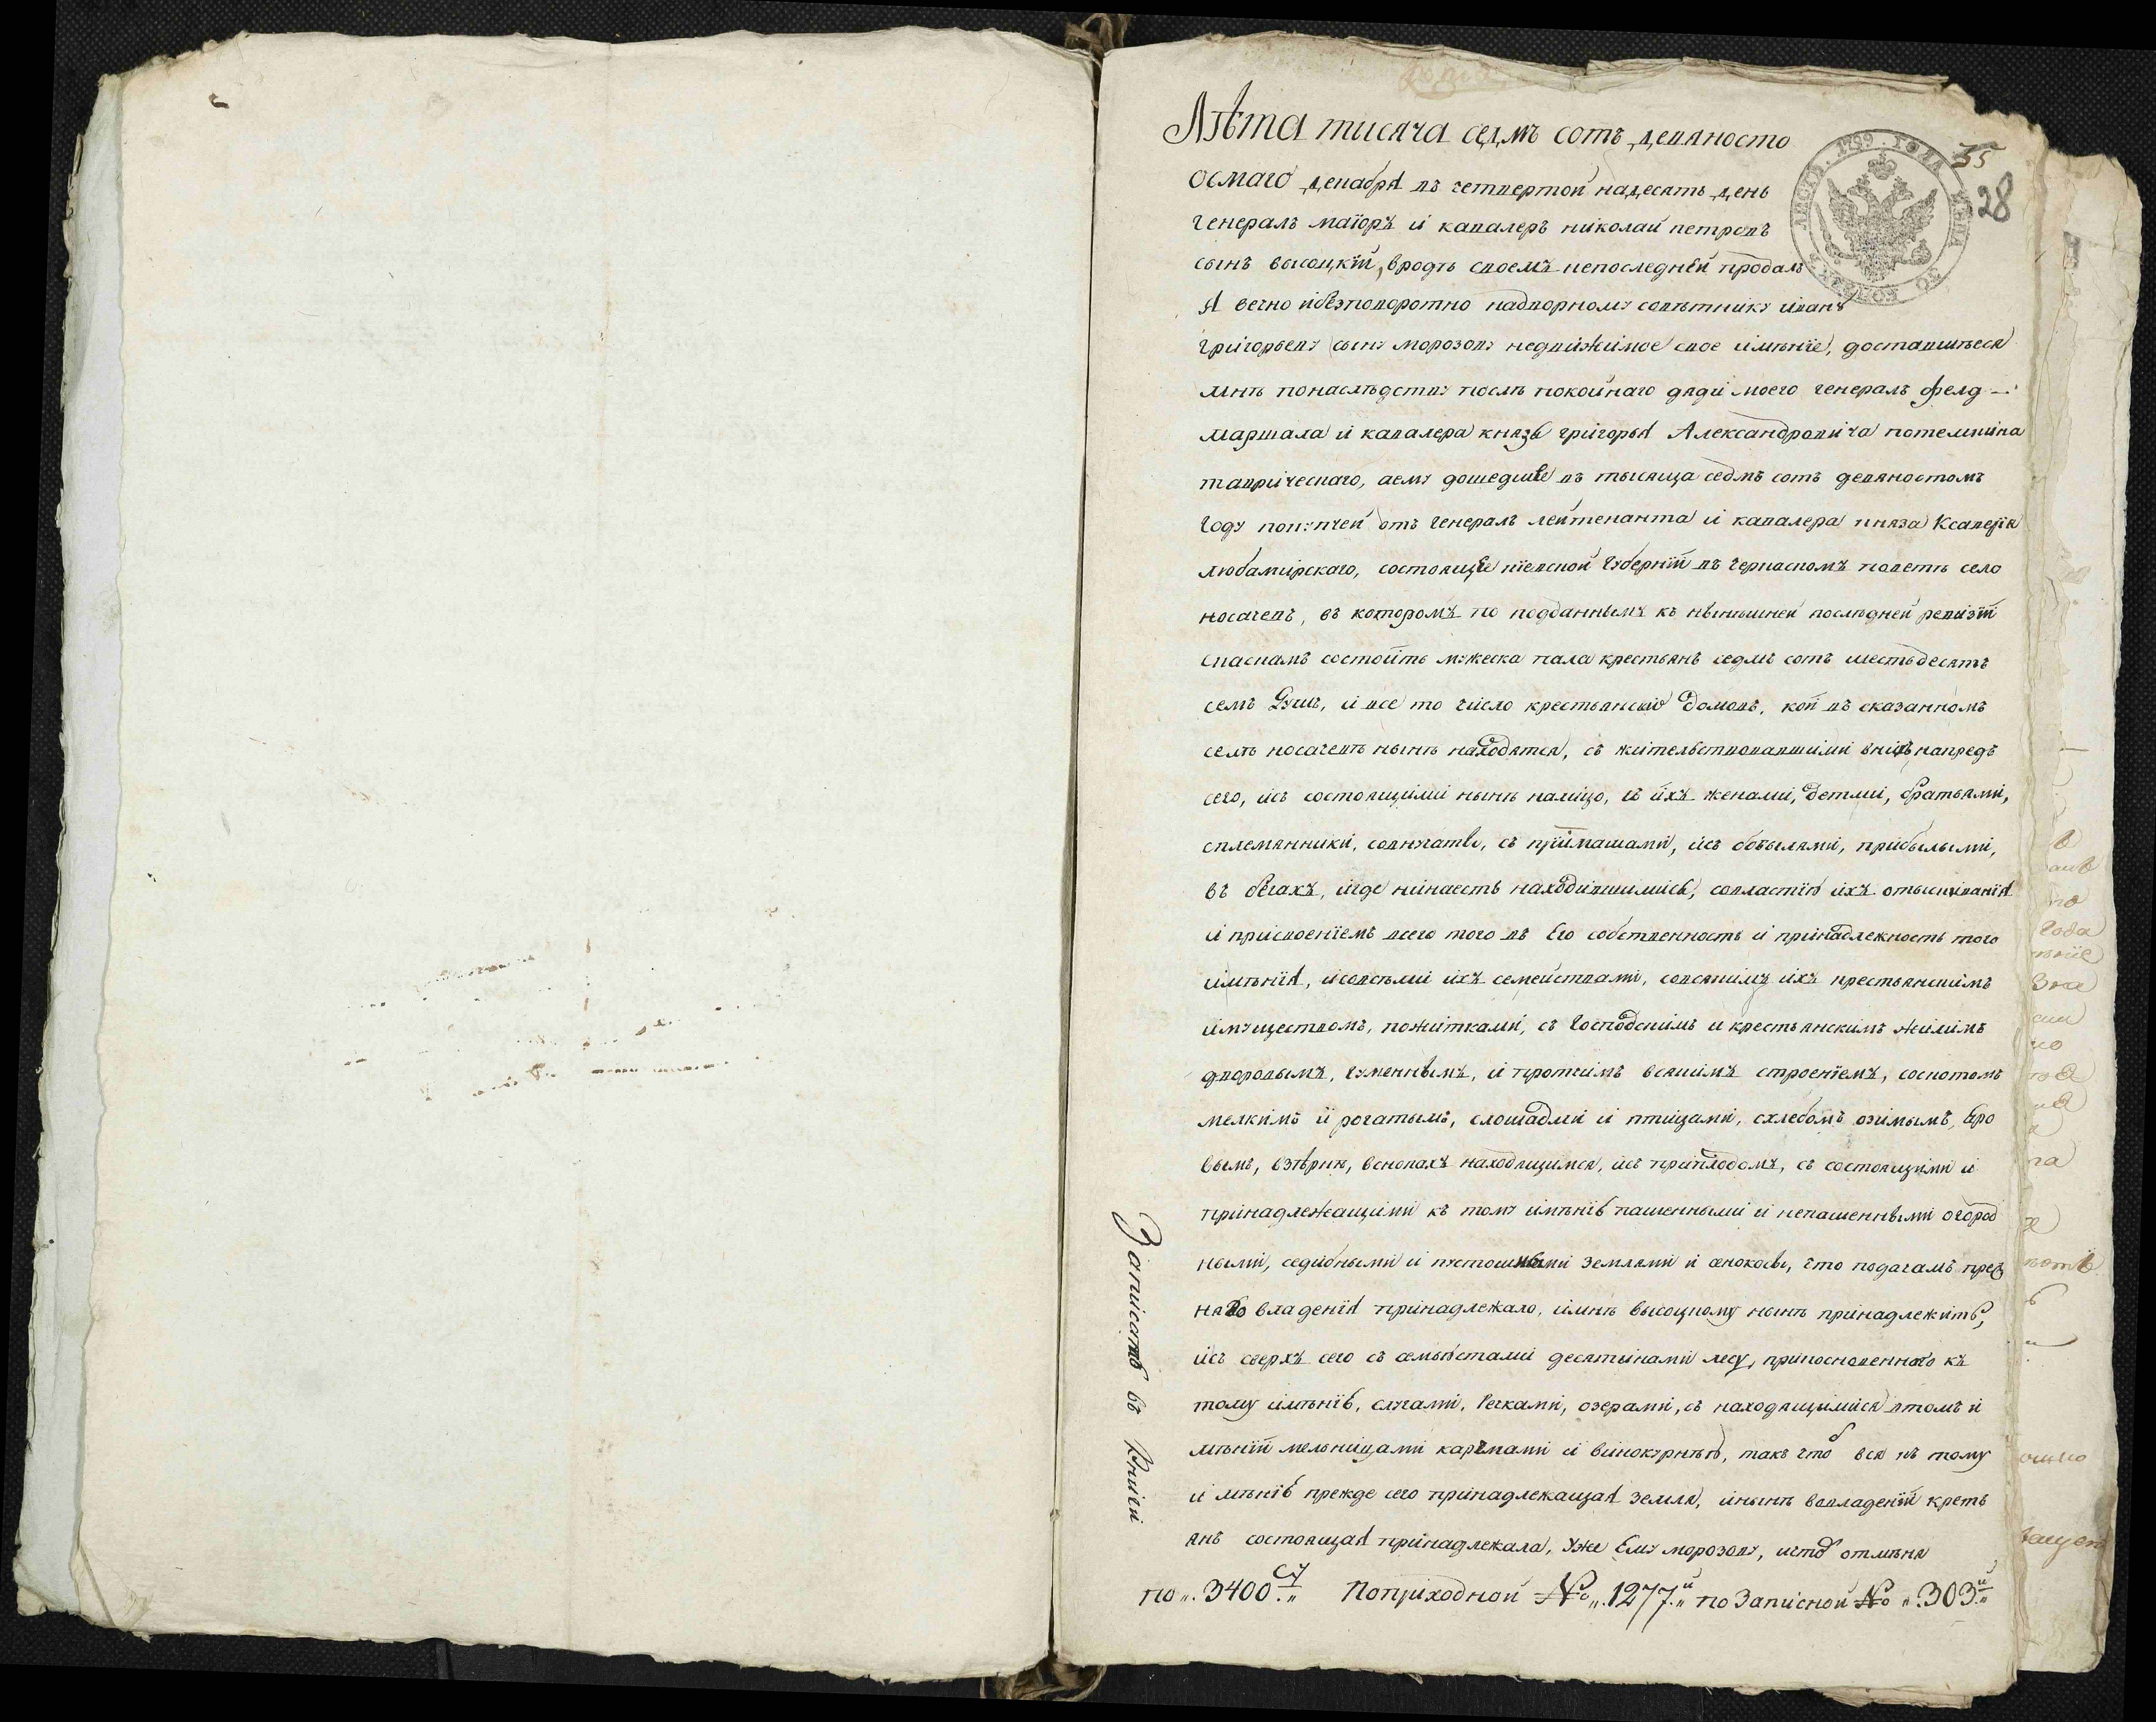 Лѣта тисяча седмъ сотъ девяносто
осмаго декабря въ четвертой надесять день
генералъ маіоръ и кавалеръ николай петровъ
сынъ высоцкій, вродѣ своемъ непоследней продалъ
я вечно ибезповоротно надворному советнику ивану
григорьеву сыну морозову недвижимое свое имѣніе, доставшѣеся
мнѣ понаслѣдству послѣ покойнаго дяди моего генералъ фелд
маршала и кавалера князя григорья Александровича потемкина
таврическаго, аему дошедшее въ тысяща седмъ сотъ девяностомъ
году покупкей отъ генералъ лейтенанта и кавалера князя Ксаверія
любамирскаго, состоящее кіевской губерніи въ черкаскомъ поветѣ село
носачевъ, въ которомъ по подданнымъ къ нынѣшней послѣдней ревизіи
скаскамъ состоитъ мужеска пала крестьянъ седмъ сотъ шестьдесятъ
семъ душъ, и все то число крестьянскихъ домовъ, кои въ сказанномъ
селѣ носачевѣ нынѣ находятся, съ жительствовавшими внихъ напредъ
сего, исъ состоящими нынѣ налицо, съ ихъ женами, детми, братьями,
сплемянники, совнучаты, съ пріймашами, исъ обѣылями, прибылыми,
въ бегахъ, игде нинаесть находившимись, совластію ихъ отыскиванія
и присвоеніемъ всего того въ Его собственность и принадлежность того
имѣнія, исовсѣми ихъ семействами, совсякимъ ихъ крестьянскимъ
имуществомъ, пожитками, съ господскимъ и крестьянскимъ жилимъ
дворовымъ, гуменнымъ, и протчимъ всякимъ строеніемъ, соскотомъ
мелкимъ и рогатымъ, слошадми и птицами, схлебомъ озимымъ, яро
вымъ, взѣрнѣ, вснопахъ находящимся, исъ приплодомъ, съ состоящими и
принадлежащими къ тому имѣнію пашенными и непашенными огород
ными, седибными и пустошными землями и сенокосы, что подачамъ преж
няго владенія принадлежало, имнѣ высоцкому нынѣ принадлежитъ,
исъ сверхъ сего съ семьюстами десятинами лесу, прикосновеннаго къ
тому имѣнію, слугами, речками, озерами, съ находящимися втомъ и
мѣніи мельницами карчмами и винокурнѣю, такъ чтоб вся къ тому
и мѣнію прежде сего принадлежащая земля, инынѣ вовладеніи кретъ
янъ состоящая принадлежала, уже Ему морозову, ичтоб отмѣня
по „3400„ су Поприходной № „1277„й по Записной № „303„й
Записать въ книги
35
28
1799 ГОДА